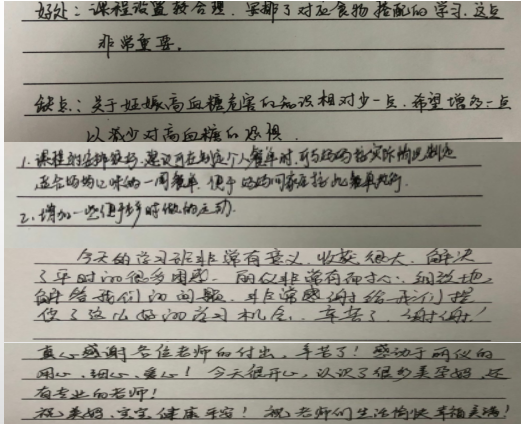 好处：课程设置较合理．安排了对应食物搭配的学习．这点
非常重要．
缺点：关于妊娠高血糖危害的知识相对少一点．希望增多一点
以减少对高血糖的恐惧．
1. 课程的安排较好，建议可在制定个人餐单时，可与妈妈按实际情况制定
适合妈妈口味的一周餐单，便于妈妈回家后按此餐单执行．
2. 增加一些便于平时做的运动．
今天的学习班非常有意义，收获很大，解决
了平时的很多困惑．丽仪非常有耐心、细致地
解答我们的问题，非常感谢给我们提
供了这么好的学习机会，辛苦了，谢谢！
真心感谢各位老师的付出，辛苦了！感动于丽仪的
用心、细心、爱心！今天很开心，认识了很多美孕妈，还
有专业的老师！
祝美妈、宝宝健康平安！祝老师们生活愉快幸福美满！